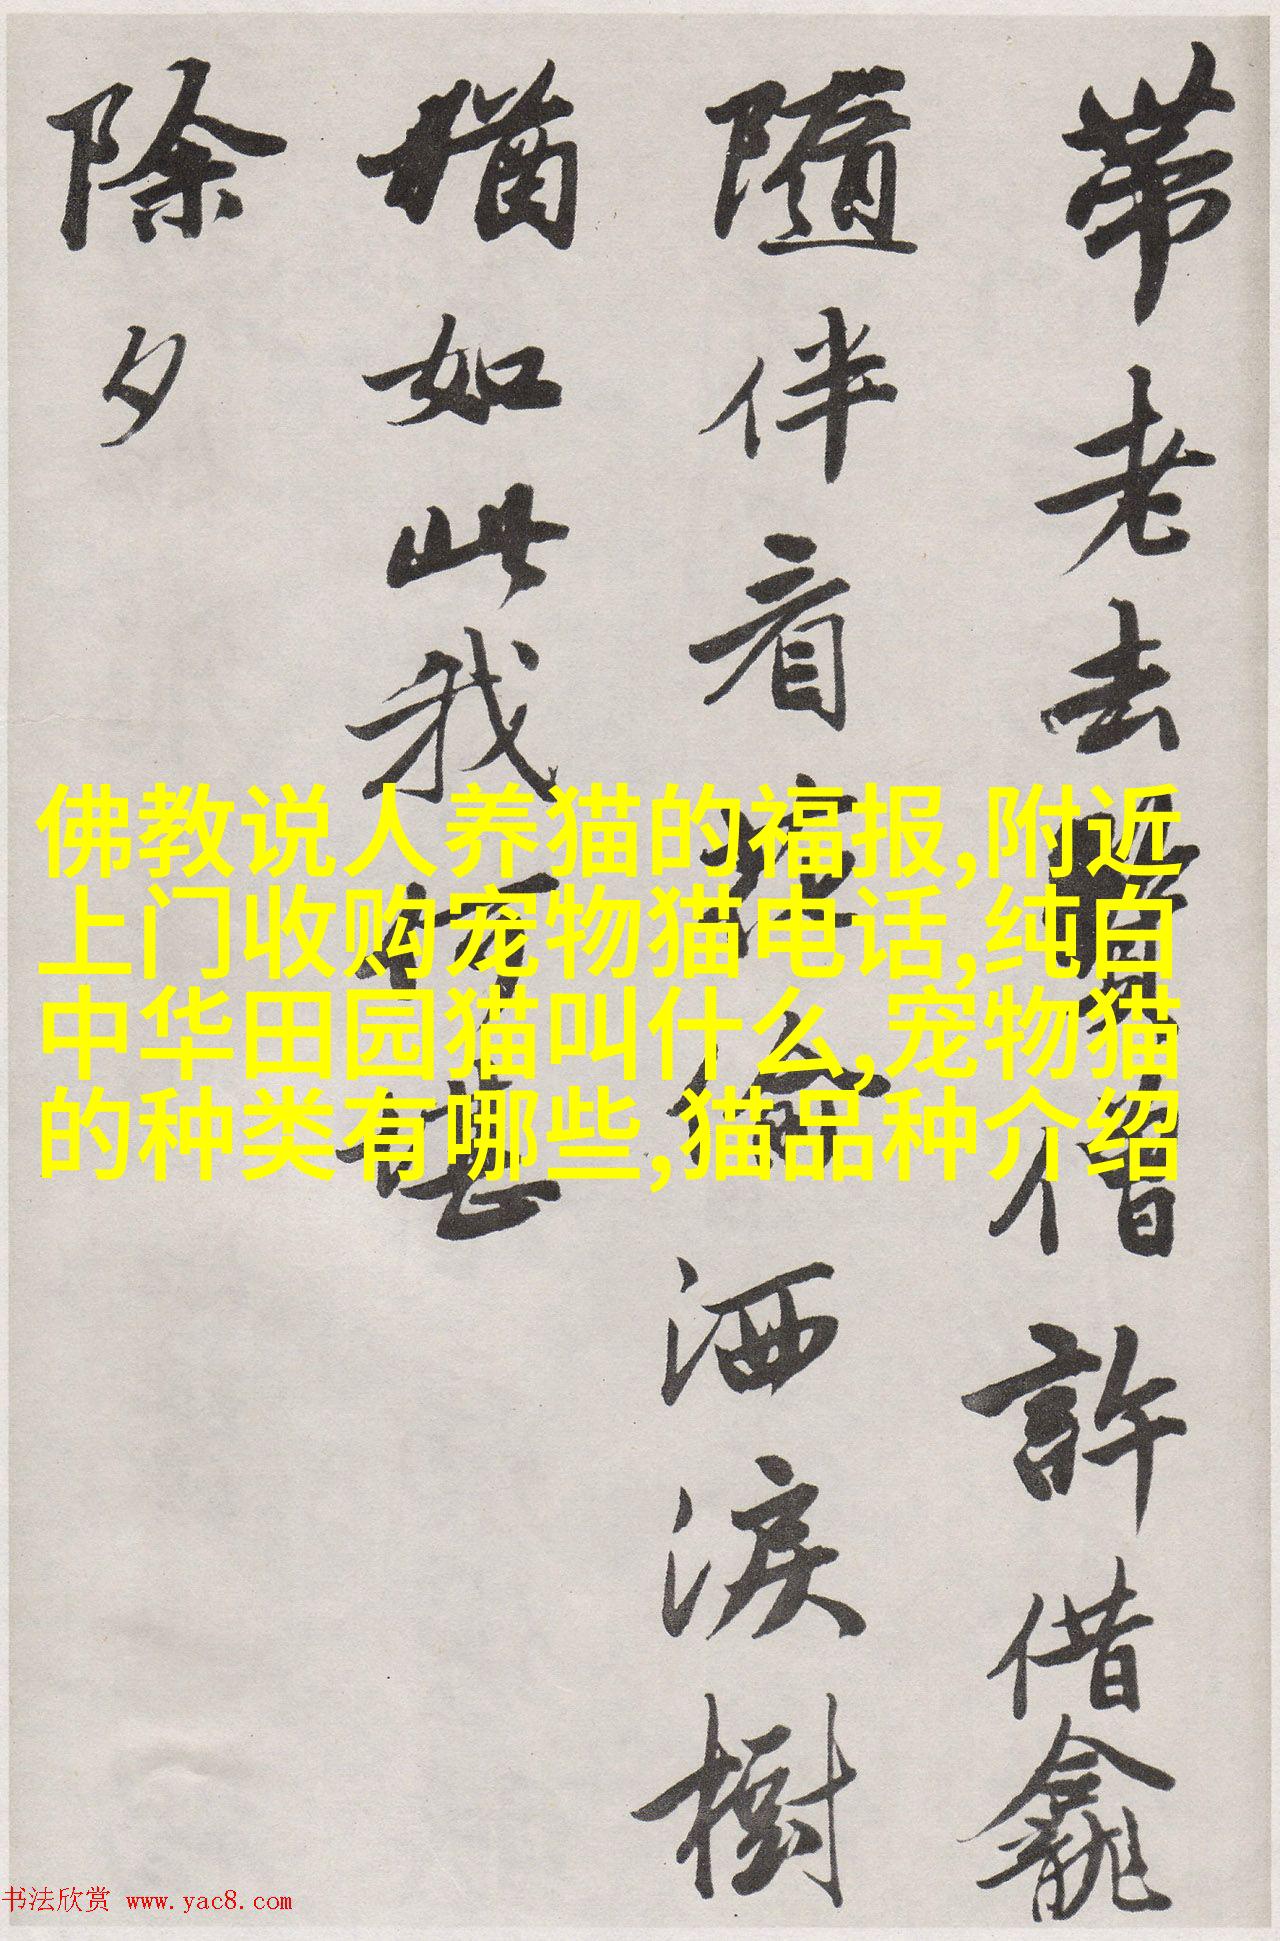 帶老去僧許借龕
隨伴看洒淚樹
猶如此我堪
除夕
佛教说人养猫的福报,附近
上门收购宠物猫电话,纯白
中华田园猫叫什么,宠物猫
的种类有哪些,猫品种介绍
书法欣赏 www.yac8.com